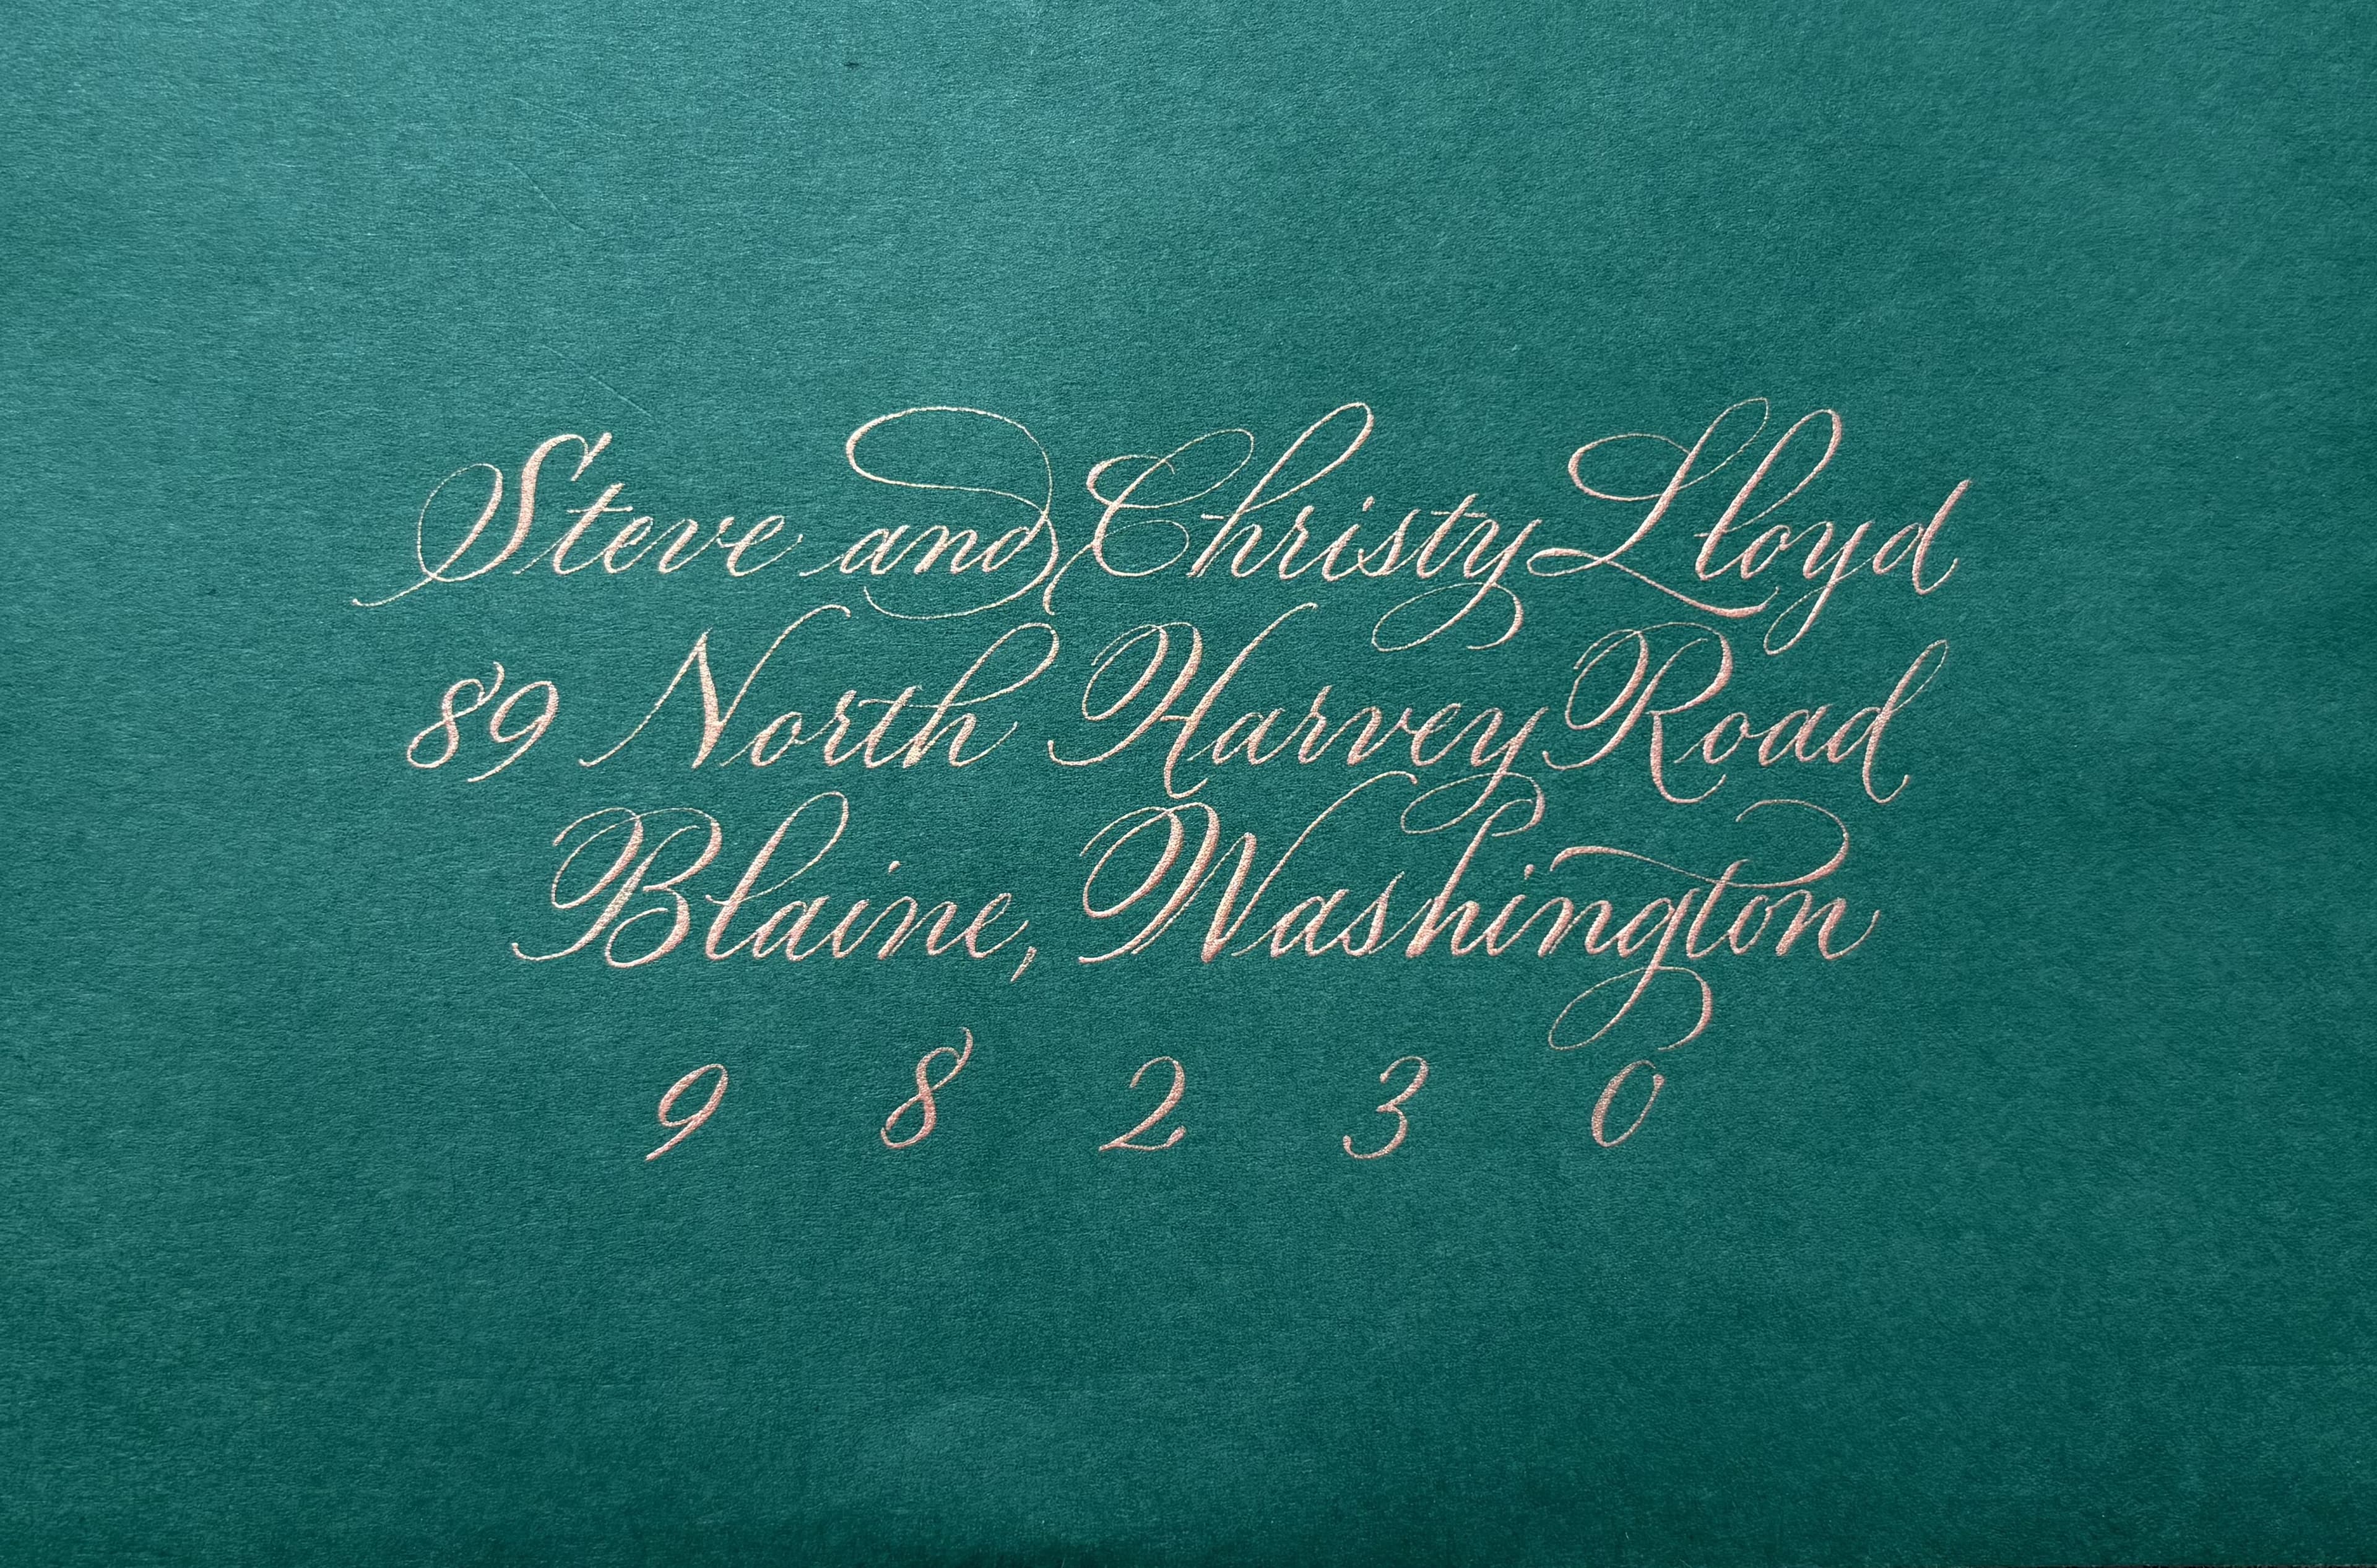 Steve and Christy Lloyd
89 North Harvey Road
Blaine, Washington
9 8 2 3 0